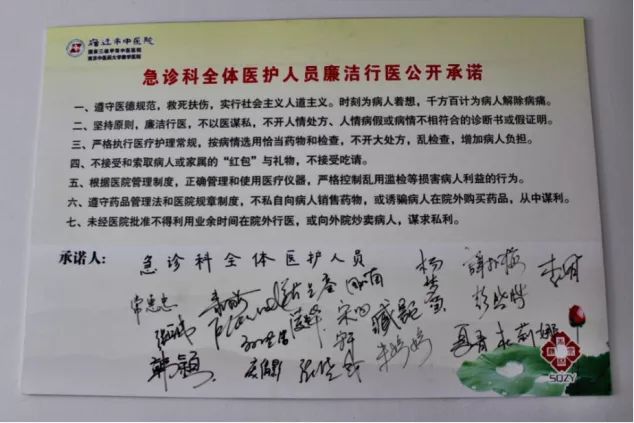 宿迁市中医院
国家三级甲等中医医院
南京中医药大学教学医院
急诊科全体医护人员廉洁行医公开承诺
一、遵守医德规范，救死扶伤，实行社会主义人道主义。时刻为病人着想，千方百计为病人解除病痛。
二、坚持原则，廉洁行医，不以医谋私，不开人情处方、人情病假或病情不相符合的诊断书或假证明。
三、严格执行医疗护理常规，按病情选用恰当药物和检查，不开大处方，乱检查，增加病人负担。
四、不接受和索取病人或家属的“红包”与礼物，不接受吃请。
五、根据医院管理制度，正确管理和使用医疗仪器，严格控制乱用滥检等损害病人利益的行为。
六、遵守药品管理法和医院规章制度，不私自向病人销售药物，或诱骗病人在院外购买药品，从中谋利。
七、未经医院批准不得利用业余时间在院外行医，或向外院炒卖病人，谋求私利。
承诺人：急诊科全体医护人员
韩颖
SQZY